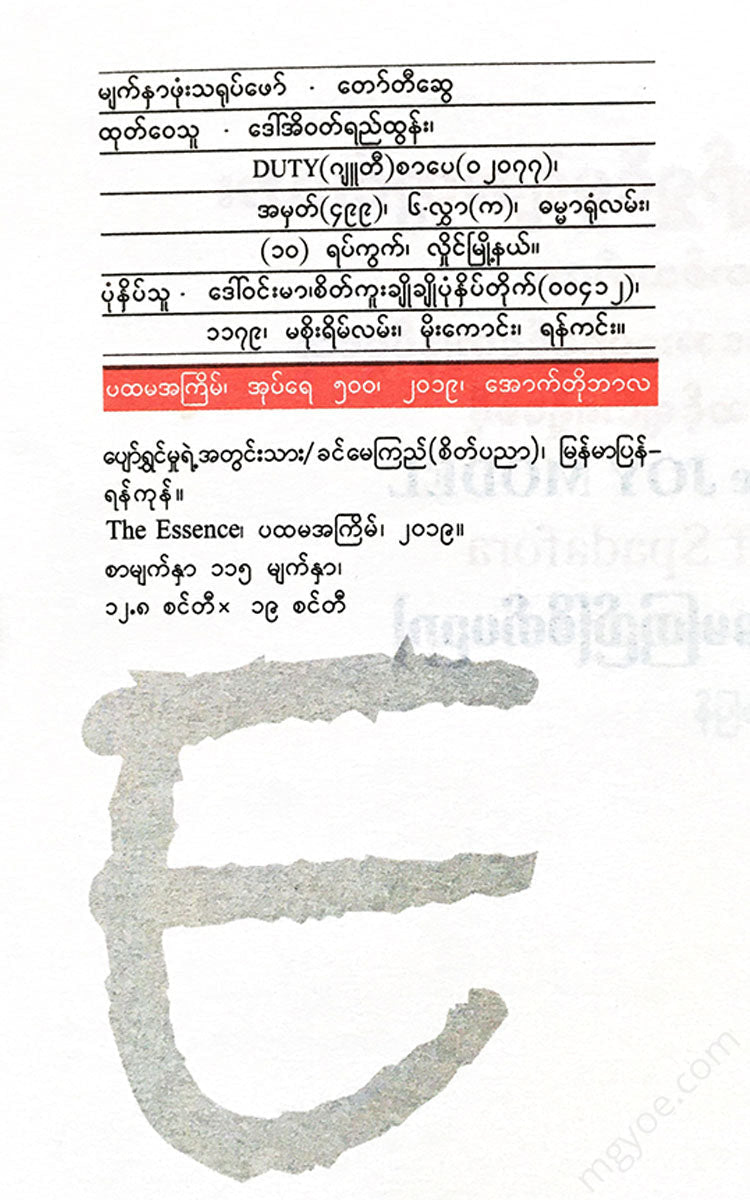 မျက်နှာဖုံးသရုပ်ဖော် - တော်တီဆွေ
ထုတ်ဝေသူ - ဒေါ်အိဝတ်ရည်ထွန်း၊
DUTY(ဂျူတီ)စာပေ(၀၂၀၇၇)၊
အမှတ်(၄၉၉)၊ ၆-လွှာ(က)၊ ဓမ္မာရုံလမ်း၊
(၁၀) ရပ်ကွက်၊ လှိုင်မြို့နယ်။
ပုံနှိပ်သူ - ဒေါ်ဝင်းမာ၊စိတ်ကူးချိုချိုပုံနှိပ်တိုက်(၀၀၄၁၂)၊
၁၁၇၉၊ မစိုးရိမ်လမ်း၊ မိုးကောင်း၊ ရန်ကင်း။
ပထမအကြိမ်၊ အုပ်ရေ ၅၀၀၊ ၂၀၁၉၊ အောက်တိုဘာလ
ပျော်ရွှင်မှုရဲ့အတွင်းသား/ခင်မေကြည်(စိတ်ပညာ)၊ မြန်မာပြန်–
ရန်ကုန်။
The Essence၊ ပထမအကြိမ်၊ ၂၀၁၉။
စာမျက်နှာ ၁၁၅ မျက်နှာ၊
၁၂.၈ စင်တီ× ၁၉ စင်တီ
mgyoe.com